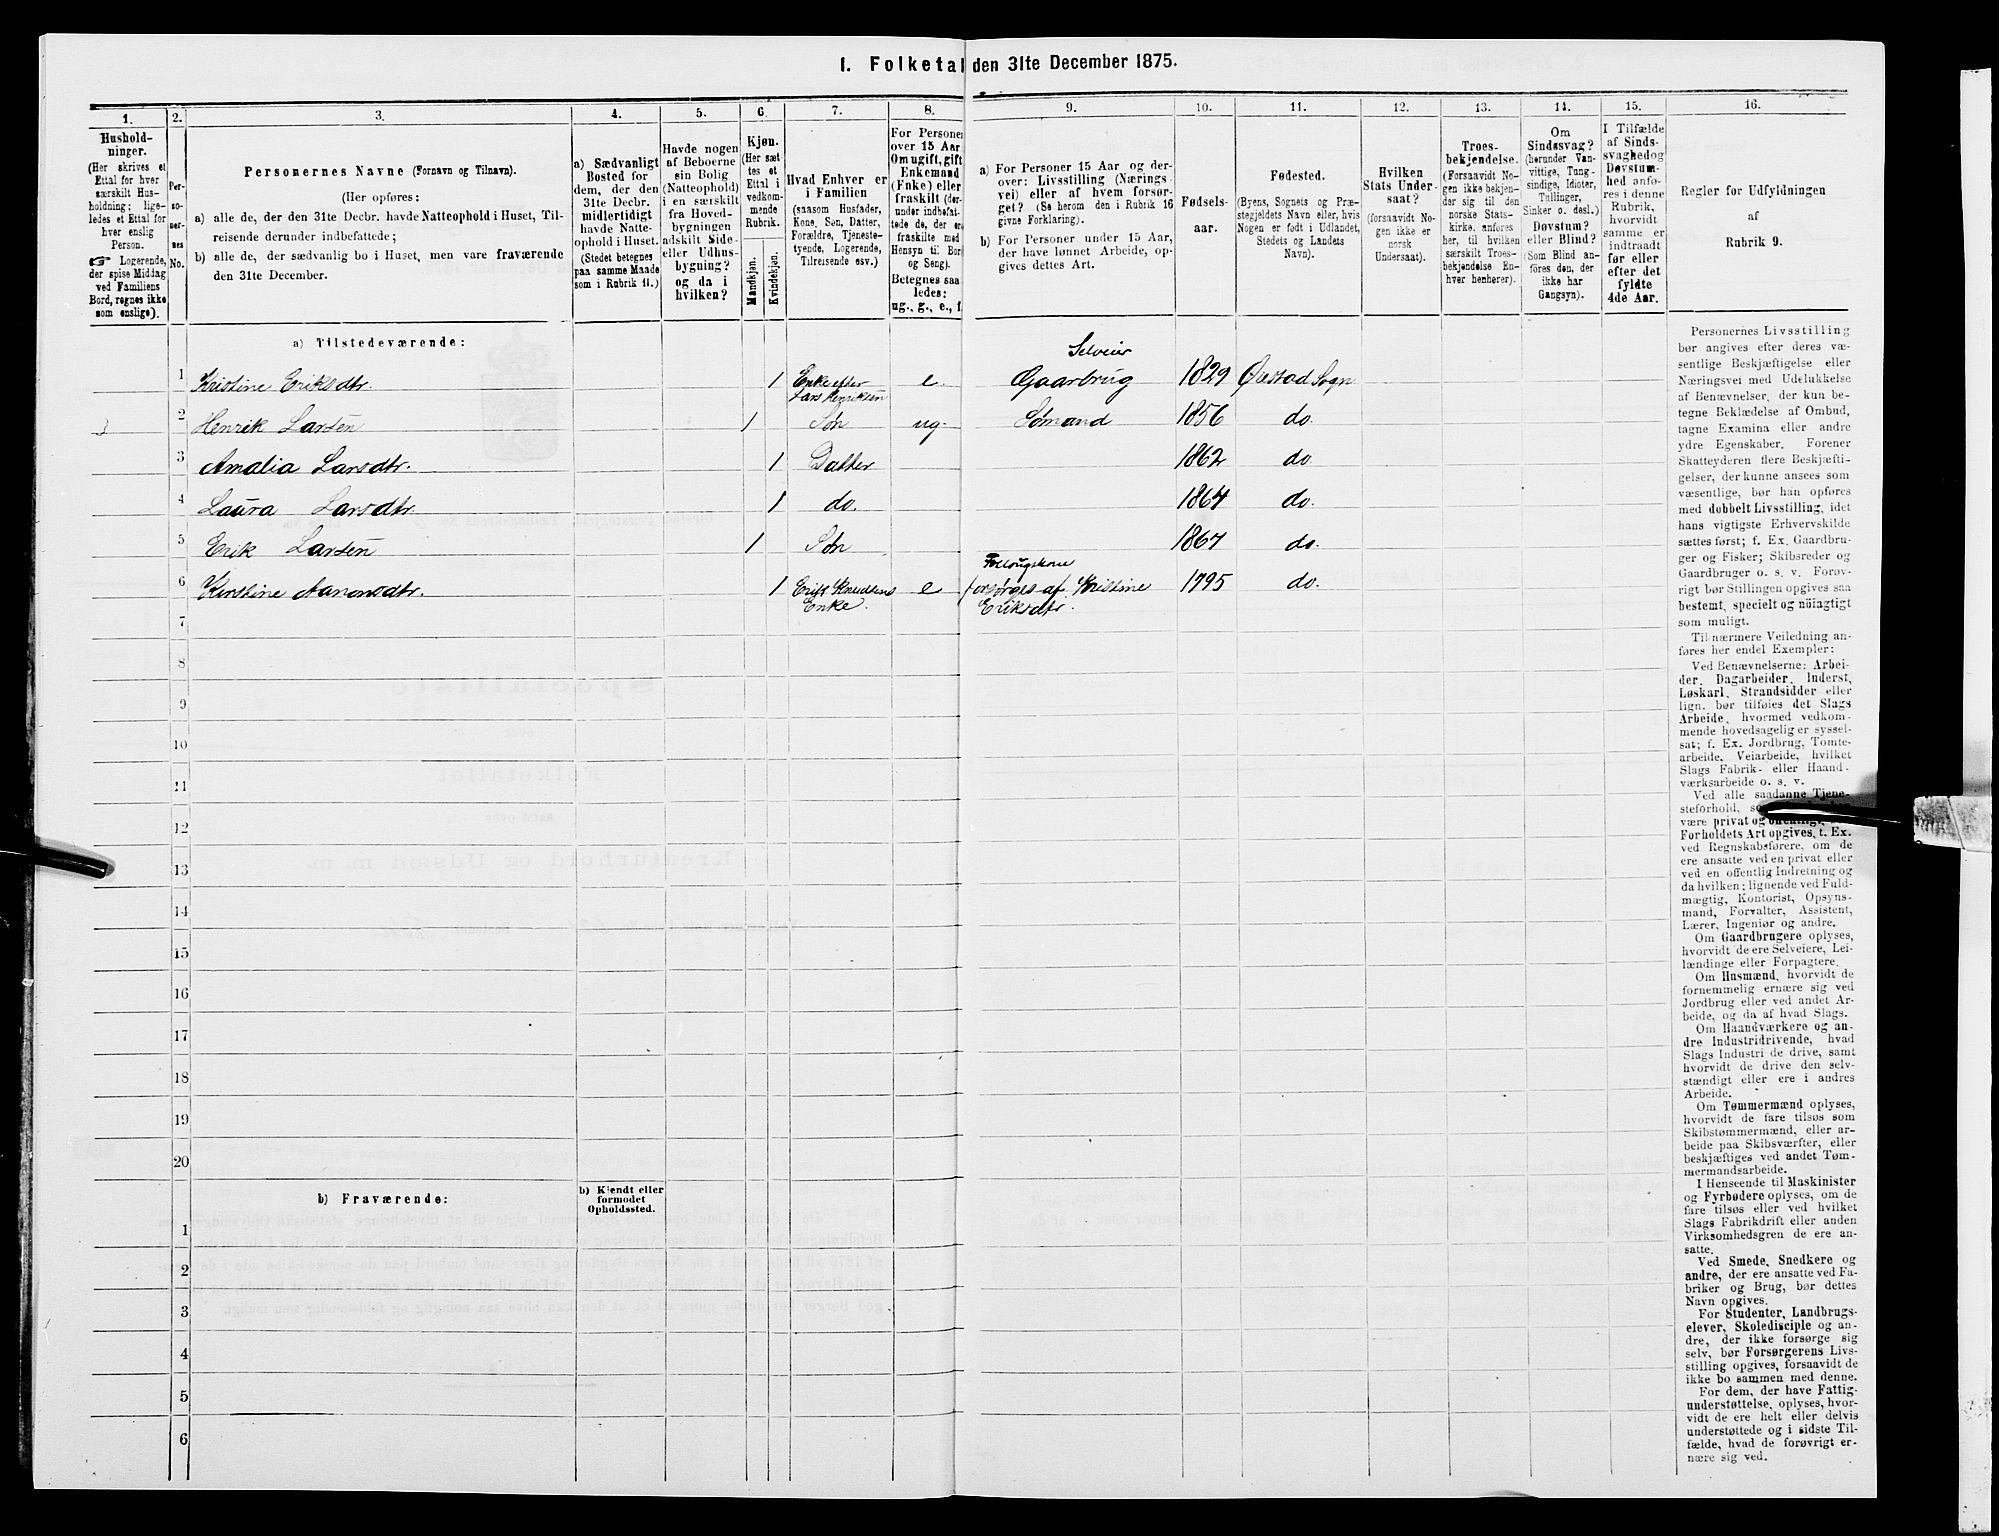 I. Folketal den 31te December 1875.
1.
Hushold-
ninger.
(Her skrives et
Ettal for hver
særskilt Hus-
holdning; lige-
ledes et Ettal for
hver enslig
Person.
☞ Logerende,
der spise Middag
ved Familiens
Bord, regnes ikke
som enslige).
2.
Per-
so-
ner-
nes
No.
3.
Personernes Navne (Fornavn og Tilnavn).
(Her opføres:
a) alle de, der den 31te Decbr. havde Natteophold i Huset, Til-
reisende derunder indbefattede;
b) alle de, der sædvanlig bo i Huset, men vare fraværende
den 31te December.
4.
a) Sædvanligt
Bosted for
dem, der den
31te Decbr.
midlertidigt
havde Natte-
ophold i Huset.
(Stedet betegnes
paa samme Maade
som i Rubrik 11.)
5.
Havde nogen
af Beboerne
sin Bolig
(Natteophold)
i en særskilt
fra Hoved-
bygningen
adskilt Side-
eller Udhus-
bygning?
og da i
hvilken?
6.
Kjøn.
(Her sæt-
tes et
Ettal i
vedkom-
mende
Rubrik.
Mandkjøn.
Kvindekjøn.
7.
Hvad Enhver er
i Familien
(saasom Husfader,
Kone, Søn, Datter,
Forældre, Tjeneste-
tyende, Logerende,
Tilreisende osv.)
8.
For Personer
over 15 Aar:
Om ugift, gift,
Enkemand
(Enke) eller
fraskilt (der-
under indbefat-
tede de, der ere
fraskilte med
Hensyn til Bord
og Seng).
Betegnes saa-
ledes:
ug., g., e., f.
9.
a) For Personer 15 Aar og der-
over: Livsstilling (Nærings-
vei) eller af hvem forsør-
get? (Se herom den i Rubrik 16
givne Forklaring).
b) For Personer under 15 Aar,
der have lønnet Arbeide, op-
gives dettes Art.
10.
Fødsels-
aar.
11.
Fødested.
(Byens, Sognets og Præ-
stegjeldets Navn eller, hvis
Nogen er født i Udlandet,
Stedets og Landets
Navn).
12.
Hvilken
Stats Under-
saat?
(forsaavidt No-
gen ikke er
norsk
Undersaat).
13.
Troes-
bekjendelse.
(Forsaavidt No-
gen ikke bekjen-
der sig til den
norske Stats-
kirke, anføres
her, til hvilken
særskilt Troes-
bekjendelse En-
hver henhører).
14.
Om
Sindssvag?
(herunder Van-
vittige, Tung-
sindige, Idioter,
Tullinger,
Sinker o. desl.)
Døvstum?
eller Blind?
(Som Blind an-
føres den, der
ikke har
Gangsyn).
15.
I Tilfælde
af Sinds-
svaghed og
Døvstum-
hed anfø-
res i denne
Rubrik,
hvorvidt
samme er
indtraadt
før eller
efter det
fyldte
4de Aar.
16.
Regler for Udfyldningen
af
Rubrik 9.
a) Tilstedeværende:
1 Kristine Eriksdtr. 1 Enke efter Lars Henriksen e. Selveier Gaarbrug 1829 Øiestad Sogn
2 Henrik Larsen 1 Søn ug. Sømand 1856 do.
3 Amalia Larsdtr. 1 Datter 1862 do
4 Laura Larsdtr. 1 do. 1864 do.
5 Erik Larsen 1 Søn 1867 do.
6 Kirstine Aanonsdtr. 1 Erik Knudsens Enke. e forsørges af Kristine Eriksdtr. 1795 do.
7
8
9
10
11
12
13
14
15
16
17
18
19
20
b) Fraværende:
b) Kjendt eller
formodet
Opholdssted.
1
2
3
4
5
6
Personernes Livsstilling
bør angives efter deres væ-
sentlige Beskjæftigelse eller
Næringsvei med Udelukkelse
af Benævnelser, der kun be-
tegne Beklædelse af Ombud,
tagne Examina eller andre
ydre Egenskaber. Forener
Skatteyderen flere Beskjæfti-
gelser, der kunne ansees som
væsentlige, bør han opføres
med dobbelt Livsstilling, idet
hans vigtigste Erhvervskilde
sættes først; f. Ex. Gaardbru-
ger og Fisker; Skibsreder og
Gaardbruger o. s. v. Forøv-
rigt bør Stillingen opgives saa
bestemt, specielt og nøiagtigt
som muligt.
Til nærmere Veiledning an-
føres her endel Exempler:
Ved Benævnelserne: Arbei-
der, Dagarbeider, Inderst,
Løskarl, Strandsidder eller
lign. bør tilføies det Slags
Arbeide, hvormed vedkom-
mende hovedsagelig er syssel-
sat; f. Ex. Jordbrug, Tomte-
arbeide, Veiarbeide, hvilket
Slags Fabrik- eller Haand-
værksarbeide o. s. v.
Ved alle saadanne Tjene-
steforhold,
være privat og
Forholdets Art opgives, t. Ex.
ved Regnskabsførere, om de
ere ansatte ved en privat eller
ved en offentlig Indretning og
da hvilken; lignende ved Fuld-
mægtig, Kontorist, Opsyns-
mand, Forvalter, Assistent,
Lærer, Ingeniør og andre.
Om Gaardbrugere oplyses,
hvorvidt de ere Selveiere, Lei-
lændinge eller Forpagtere.
Om Husmænd, hvorvidt de
fornemmelig ernære sig ved
Jordbrug eller ved andet Ar-
beide, og da af hvad Slags.
Om Haandværkere og an-
dre Industridrivende, hvad
Slags Industri de drive, samt
hvorvidt de drive den selv-
stændigt eller ere i andres
Arbeide.
Om Tømmermænd oplyses,
hvorvidt de fare tilsøs som
Skibstømmermænd, eller ar-
beide paa Skibsværfter, eller
beskjæftiges ved andet Tøm-
mermandsarbeide.
I Henseende til Maskinister
og Fyrbødere oplyses, om de
fare tilsøs eller ved hvilket
Slags Fabrikdrift eller anden
Virksomhedsgren de ere an-
satte.
Ved Smede, Snedkere og
andre, der ere ansatte ved Fa-
briker og Brug, bør dettes
Navn opgives.
For Studenter, Landbrugs-
elever, Skoledisciple og an-
dre, der ikke forsørge sig
selv, bør Forsørgerens Livs-
stilling opgives, forsaavidt de
ikke bo sammen med denne.
For dem, der have Fattig-
understøttelse, oplyses, hvor-
vidt de ere helt eller delvis
understøttede og i sidste Til-
fælde, hvad de forøvrigt er-
nære sig ved.